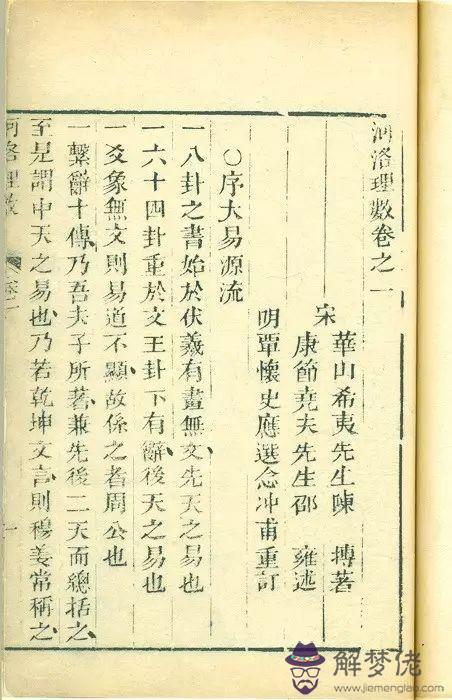 河洛理數卷之一
宋
華山希夷先生陳 摶著
康節堯夫先生邵 雍述
明覃懷史應選念冲甫重訂
○序大易源流
一八卦之書始於伏羲有畫無文先天之易也
一六十四卦重於文王卦下有辭後天之易也
一爻象無文則易道不顯故係之者周公也
一繫辭十傳乃吾夫子所著兼先後二天而總括之
至是謂中天之易也乃若乾坤文言則穆姜常稱之
河洛理數
一
解梦佬
www.jiemenglao.com